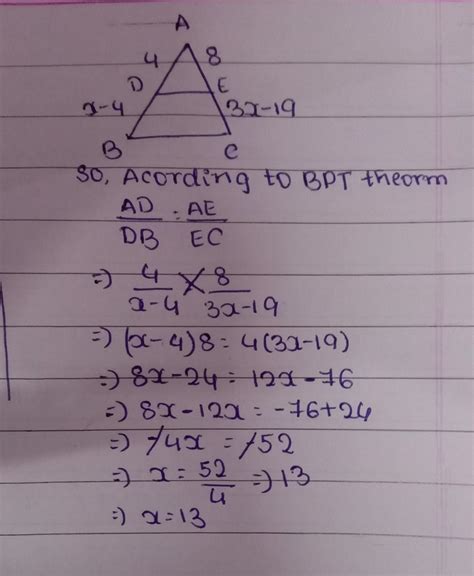 A
4 8
D E
x-4 3x-19
B C
So, Acording to BPT theorm
AD/DB = AE/EC
=) 4/x-4 × 8/3x-19
=) (x-4)8 = 4(3x-19)
=) 8x-24 = 12x-76
=) 8x-12x = -76+24
=) -4x = -52
=) x = 52/4 =) 13
=) x=13